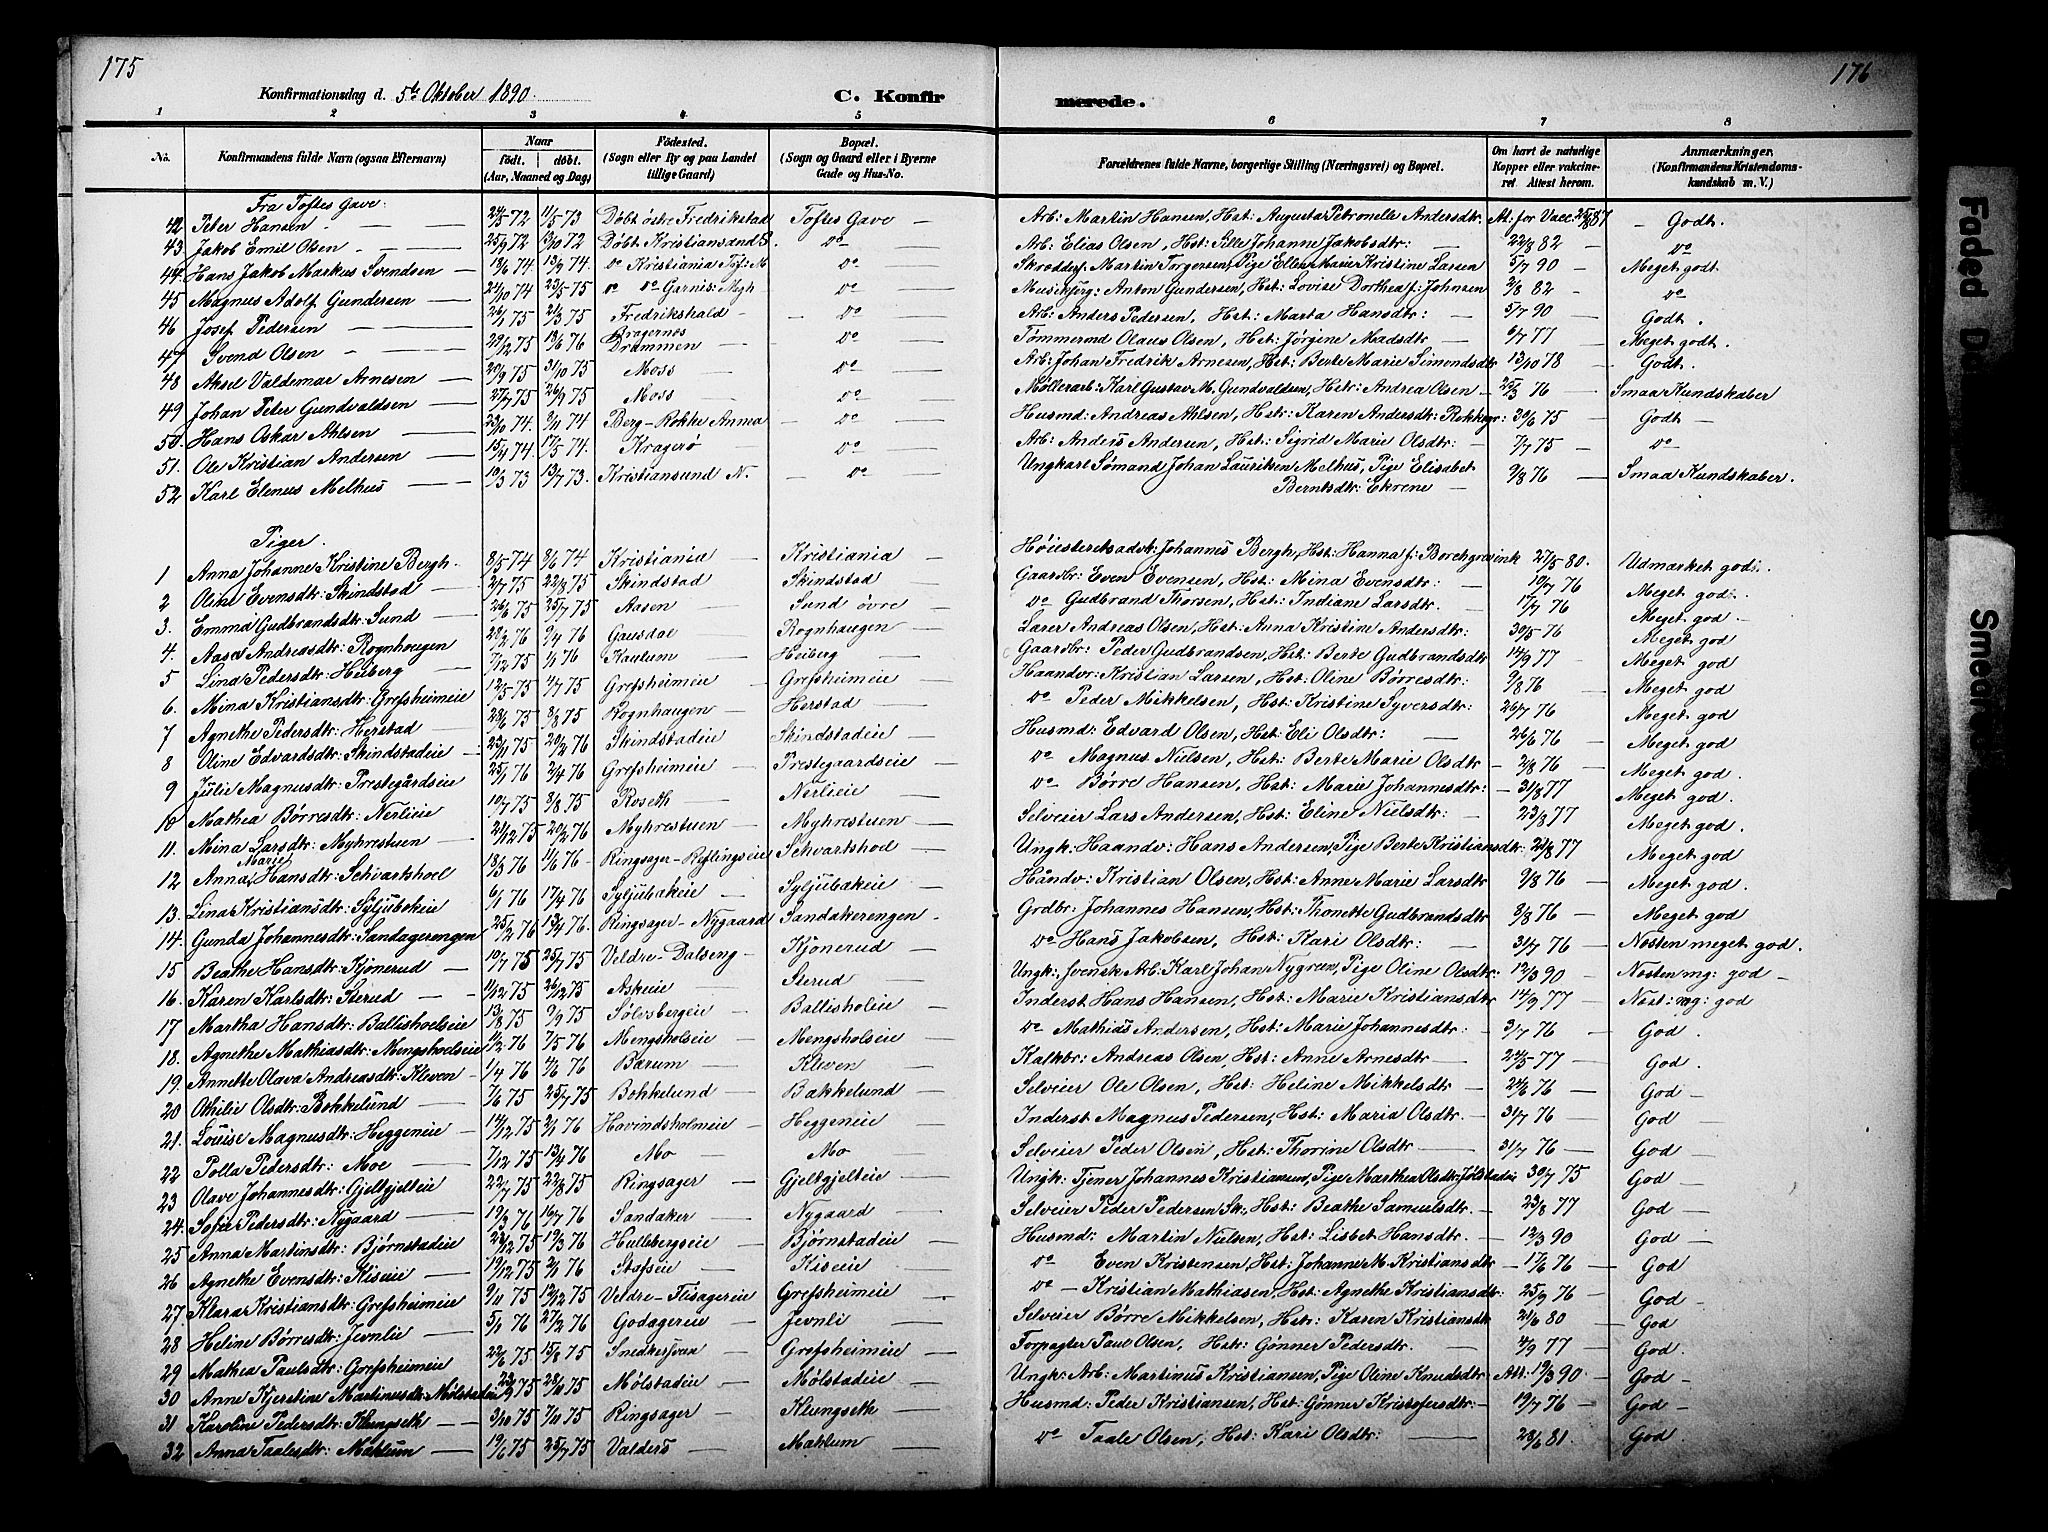 175
176
Konfirmationsdag d. 5te Oktober 1890.
C. Konfirmerede.
1 2 3 4 5 6 7 8
No. Konfirmandens fulde Navn (ogsaa Efternavn) Naar født. døbt. (Aar, Maaned og Dag) Fødested. (Sogn eller By og paa Landet tillige Gaard) Bopæl. (Sogn og Gaard eller i Byerne Gade og Hus-No. Forældrenes fulde Navne, borgerlige Stilling (Næringsvei) og Bopæl. Om havt de naturlige Kopper eller vakcineret Attest herom. Anmærkninger, (Konfirmandens Kristendomskundskab m. V.)
Fra Toftes Gave:
42 Peter Hansen 24/5 72 11/5 73 Døbt østre Fredrikstad Toftes Gave Arb: Martin Hansen, Hst: Augusta Petronelle Andersdtr. At. for Vacc. 25/8 87 Godt.
43 Jakob Emil Olsen 25/9 72 13/10 72 Døbt Kristiansand S. do Arb: Elias Olsen, Hst: Sille Johanne Jakobsdtr: 22/8 82 do
44 Hans Jakob Markus Svendsen 18/6 74 13/9 74. do Kristiania Tøf: M do Skrædders: Martin Torgersen, Pige Ellen Marie Kristine Larsen 5/7 90 Meget godt
45 Magnus Adolf Gundersen 24/10 74 23/5 75 do do Garnis: Mgh do Musikfürg: Anton Gundersen, Hst: Lovise Dorthea f: Johnsen 2/8 82 do
46 Josef Pedersen 26/1 75 21/3 75 Fredrikshald do Arb: Anders Pedersen, Hst: Marta Hansdtr: 5/7 90 Godt.
47 Svend Olsen 29/12 75 18/6 76 Bragernes Drammen do Tømmermd Olaus Olsen, Hst: Jørgine Madsdtr 6/7 77 Meget godt.
48 Aksel Valdemar Arnesen 20/9 75 31/10 75 Moss do Arb: Johan Fredrik Arnesen, Hst: Berte Marie Simondsdtr 13/10 78 Godt.
49 Johan Peter Gundvaldsen 27/7 75 26/9 75 Moss do Møllerarb: Karl Gustav M. Gundvaldsen, Hst: Andrea Olsen 25/3 76 Smaa Kundskaber
50. Hans Oskar Ahlsen 23/10 74. 8/11 74 Berg-Rokke Anmx do Husmd: Andreas Ahlsen, Hst: Karen Andersdtr: Rokkegr: 20/6 75 Godt
51. Ole Kristian Andersen 15/4 74. 17/5 74. Kragerø do Arb: Anders Andersen, Hst: Sigrid Marie Olsdtr: 7/7 75 do
52 Karl Elenus Melhus 19/3 73 13/7 73. Kristiansund N. do Ungkarl Sømand Johan Lauriken Melhus, Pige Elisabet 9/8 76 Smaa Kundskaber.
Berntsdtr: Ekrene
Piger.
1 Anna Johanne Kristine Bergh. 8/5 74 8/6 74 Kristiania Kristiania Høiesteretsadvk: Johannes Bergh, Hst: Hanna f: Borchgrevink 27/5 80. Udmærket god.
2 Oline Evensdtr: Skindstad 2/7 75 22/8 75 Skindstad Skindstad Gaardbr: Even Evensen, Hst: Mina Evensdtr: 10/7 76 Meget god.
3. Emma Gudbrandsdtr: Sund 26/6 75 25/7 75 Aasen Sund øvre do Gudbrand Thorsen, Hst: Indiane Larsdtr. 17/7 76 Meget god.
4. Aase Andreasdtr: Rognhaugen 28/2 76 9/4 76 Gausdal Rognhaugen Lærer Andreas Olsen, Hst: Anna Kristine Andersdtr: 30/5 76 Meget god
5 Lina Pedersdtr: Heiberg 7/12 75 1/1 76 Kaulum Heiberg Gaardbr: Peder Gudbrandsen, Hst: Berte Gudbrandsdtr 14/9 77 Meget god
6. Mina Kristiansdtr: Grefsheimeie 12/5 75 4/7 75 Grefsheimeie Grefsheimeie Haandv: Kristian Larsen, Hst: Oline Børresdtr: 9/8 76 Meget god
7 Agnethe Pedersdtr: Herstad 28/6 75 8/8 75 Rognhaugen Herstad do Peder Mikkelsen, Hst: Kristine Syversdtr: 26/7 76 Meget god
8 Oline Edvardsdtr: Skindstadeie 23/11 75 20/2 76 Skindstadeie Skindstadeie Husmd: Edvard Olsen, Hst: Eli Olsdtr: 26/6 76 Meget god
9 Julie Magnusdtr: Prestegårdseie 25/1 76 2/4 76 Grefsheimeie Prestegaardseie do Magnus Nielsen, Hst: Berte Marie Olsdtr 2/8 76 Meget god.
10 Mathea Børresdtr: Nerlieie 10/7 75 8/8 75 Roseth Nerlieie do Børre Hansen, Hst: Marie Johannesdtr: 31/8 77 Meget god.
11. Mina Larsdtr: Myhrestuen 21/12 75 20/2 76 Myhrestuen Myhrestuen Selveier Lars Andersen, Hst: Eline Nielsdtr: 23/8 77 Meget god.
12 Anna Marie Hansdtr: Schvartshoel 18/3 76 11/6 76. Ringsager-Røflingseie Schvartshol Ungk: Haandv: Hans Andersen, Pige Berte Kristiansdtr: 23/8 77 Meget god
13. Lina Kristiansdtr: Syljubakeie 6/1 76 17/4 76 Syljubakeie Syljubakeie Håndv: Kristian Olsen, Hst: Anne Marie Larsdtr 9/8 76 Meget god.
14. Gunda Johannesdtr: Sandagerengen 25/2 76 13/4 76. Ringsager-Nygaard Sandakerengen Grdbr: Johannes Hansen, Hst: Thonette Gudbrandsdtr 8/8 76 Meget god
15 Beathe Hansdtr: Kjonerud 10/7 75 25/7 75 Veldre-Dalseng Kjonerud do Hans Jakobsen, Hst: Kari Olsdtr: 31/7 76 Nesten meget god.
16. Karen Karlsdtr: Sterud 11/12 75 26/12 75 Askeie Sterud Ungk: svensk Arb: Karl Johan Nygreen, Pige Oline Olsdtr: 12/3 90 Nesten mg: god
17 Martha Hansdtr: Ballishoelseie 13/8 75 9/9 75 Sølvsbergeie Ballisholeie Inderst Hans Hansen, Hst: Marie Kristiansdtr 14/9 77 Nest: mg: god
18. Agnethe Mathiasdtr: Mengshoelseie 11/2 76 7/5 76 Mengsholseie Mengsholseie do Mathias Andersen, Hst: Marie Johannesdtr: 3/7 76 God.
19. Annette Olava Andreasdtr: Kleven 1/4 76 4/6 76 Bærum Kleven Kalkbr: Andreas Olsen, Hst: Anne Arnesdtr 24/5 77 God.
20 Othilie Olsdtr: Bokkelund 7/6 75 25/7 75 Bokkelund Bakkelund Selveier Ole Olsen, Hst: Heline Mikkelsdtr 24/6 76 God
21. Louise Magnusdtr: Heggeneie 14/12 75 2/1 76 Hovindsholmeie Heggeneie Inderst Magnus Pedersen, Hst: Maria Olsdtr. 31/7 76 God
22 Polla Pedersdtr: Moe 7/12 75 13/4 76 Mo Mo Selveier Peder Olsen, Hst: Thorine Olsdtr 31/7 76 God
23 Olave Johannesdtr: Gjeltgjelteie 22/7 75 22/8 75 Ringsager Gjeltgjelteie Ungk: Tjener Johannes Kristiansen, Pige Marthea Olsdtr: Jølstadeie 30/7 75 God
24. Sofie Pedersdtr: Nygaard 19/3 76 16/7 76 Sandaker Nygaard Selveier Peder Pedersen Sk:, Hst: Beathe Samuelsdtr. 23/8 77 God
25 Anna Martinsdtr: Bjørnstadeie 28/12 75 19/3 76 Hullebergseie Bjørnstadeie Husmd: Martin Nielsen, Hst: Lisbet Hansdtr. 12/3 90 God
26 Agnethe Evensdtr: Kiseie 19/12 75 2/1 76 Stafseie Kiseie do Even Kristensen, Hst: Johanne M. Kristiansdtr 17/6 76 God
27 Klara Kristiansdtr: Grefsheimeie 9/11 75 12/12 75 Veldre-Flisageie Grefsheimeie do Kristian Mathiasen, Hst: Agnethe Kristiansdtr: 25/9 76 God
28 Heline Børresdtr: Jevnlie 5/1 76 27/2 76 Godagereie Jevnli Selveier Børre Mikkelsen, Hst: Karen Kristiansdtr 21/6 80 God
29 Mathea Paulsdtr: Grefsheimeie 22/6 75 15/8 75 Snekkersvea Grefsheimeie Forpagter Paul Olsen, Hst: Gønner Pedersdtr. 4/9 77 God.
30 Anne Kjerstine Martinusdtr: Mølstadeie 23/9 75 28/10 75 Mølstadeie Mølstadeie Ungk: Arb: Martinus Kristiansen, Pige Oline Knudsdtr: Att: 19/3 90 God
31 Karoline Pedersdtr: Klungseth 3/10 75 7/11 75 Ringsager Klungseth Husmd: Peder Kristiansen, Hst: Gønner Kristofersdtr: 19/7 76 God
32 Anna Taalesdtr: Mæhlum 19/6 75 25/7 75 Valders Mæhlum do Taale Olsen, Hst: Kari Olsdtr: 28/6 81. God
Faded
Smeared